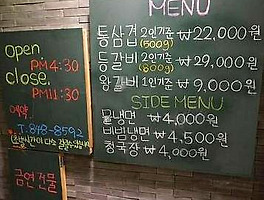 Open
PM 4:30
close.
PM 11:30
예약.
T.848-8592
금연건물
MENU
통삼겹 2인기준 ₩22,000원
(500g)
등갈비 2인기준 ₩29,000원
(800g)
왕갈비 1인기준 ₩9,000원
SIDE MENU
물냉면 ₩4,000원
비빔냉면 ₩4,500원
청국장 ₩4,000원